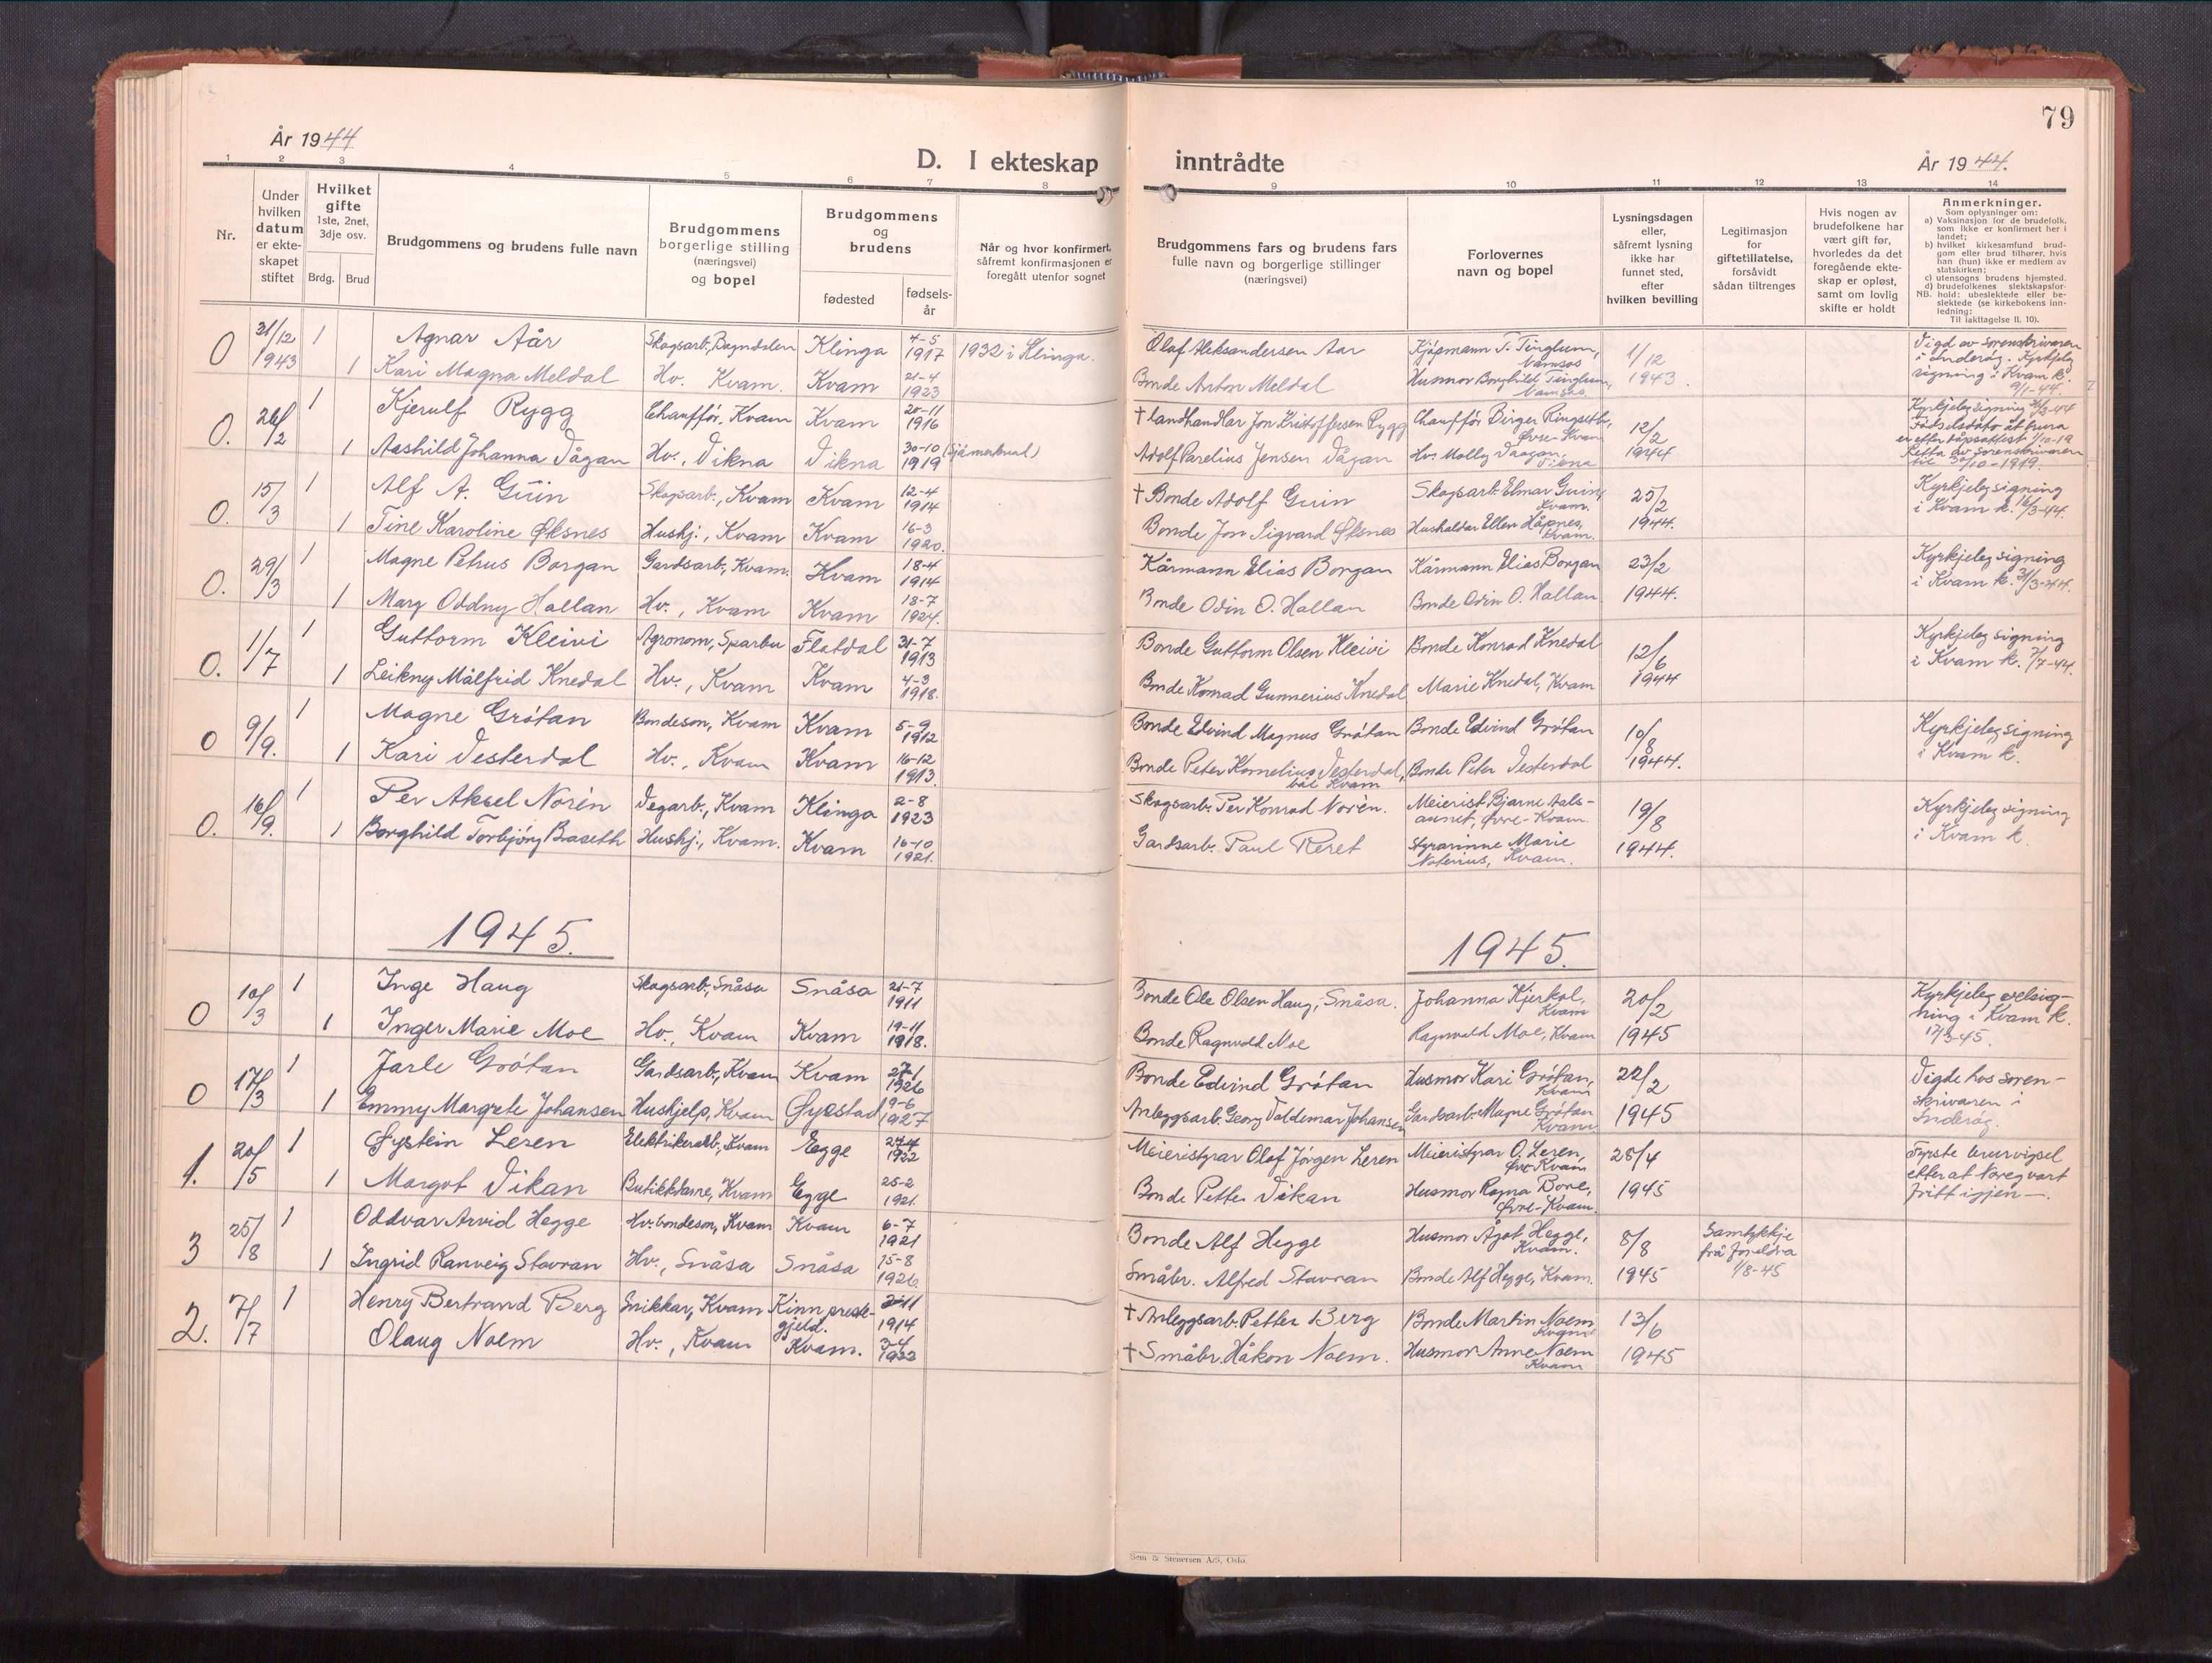 79
År 1944
D. I ekteskap inntrådte
År 1944.
1 2 3 4 5 6 7 8 9 10 11 12 13 14
Nr.
Under
hvilken
datum
er ekte-
skapet
stiftet
Hvilket
gifte
1ste, 2net,
3dje osv.
Brdg. Brud
Brudgommens og brudens fulle navn
Brudgommens
borgerlige stilling
(næringsvei)
og bopel
Brudgommens
og
brudens
fødested
fødsels-
år
Når og hvor konfirmert,
såfremt konfirmasjonen er
foregått utenfor sognet
Brudgommens fars og brudens fars
fulle navn og borgerlige stillinger
(næringsvei)
Forlovernes
navn og bopel
Lysningsdagen
eller,
såfremt lysning
ikke har
funnet sted,
efter
hvilken bevilling
Legitimasjon
for
giftetillatelse,
forsåvidt
sådan tiltrenges
Hvis nogen av
brudefolkene har
vært gift før,
hvorledes da det
foregående ekte-
skap er opløst,
samt om lovlig
skifte er holdt
Anmerkninger.
Som oplysninger om:
a) Vaksinasjon for de brudefolk,
som ikke er konfirmert her i
landet;
b) hvilket kirkesamfund brud-
gom eller brud tilhører, hvis
han (hun) ikke er medlem av
statskirken;
c) utensogns brudens hjemsted.
d) brudefolkenes slektskapsfor-
NB. hold: ubeslektede eller be-
slektede (se kirkebokens inn-
ledning:
Til iakttagelse II. 10).
0 31/12 1943 1 Agnar Aår Skogsarb., Bangdalen Klinga 4-5 1917 1932 i Klinga. Olaf Aleksandersen Aar Kjøpmann T. Tinglum, Namsos 1/12 1943. Vigd av sorenskrivaren
i Inderøy. Kyrkjeleg
signing i Kvam k.
9/1-44.
1 Kari Magna Meldal Hv. Kvam. Kvam 21-4 1923 Bonde Anton Meldal Husmor Borghild Tinglum, Namsos
0. 26/2 1 Kjerulf Rygg Chauffør, Kvam Kvam 20-11 1916 † Landhandlar Jon Kristoffersen Rygg Chauffør Birger Ringseth, Øvre-Kvam 12/2 1944 Kyrkjeleg signing /3-44
Fødselsdato åt brura
er etter dåpsattest 1/10-19
Retta av sorenskrivaren
til 30/10-1919.
1 Aashild Johanna Vågan Hv., Vikna Vikna 30-10 1919 (sjå merknad) Adolf Parelius Jensen Vågan Hv. Molly Vaagan, Vikna
0. 15/3 1 Alf A. Guin Skogsarb., Kvam Kvam 12-4 1914 † Bonde Adolf Guin Skogsarb. Elmar Guin, Kvam. 25/2 1944. Kyrkjeleg signing
i Kvam k. 16/3-44.
1 Tine Karoline Øksnes Hushj., Kvam Kvam 16-3 1920. Bonde Jon Sigvard Øksnes Hushaldar Ellen Håpnes, Kvam.
0. 29/3 1 Magne Petrus Borgan Gardsarb., Kvam. Kvam 18-4 1914 Kårmann Elias Borgan Kårmann Elias Borgan 23/2 1944. Kyrkjeleg signing
i Kvam k. 31/3-44.
1 Mary Oddny Hallan Hv., Kvam Kvam 18-7 1924. Bonde Odin O. Hallan Bonde Odin O. Hallan
0. 1/7 1 Guttorm Kleivi Agronom, Sparbu Flatdal 31-7 1913 Bonde Guttorm Olsen Kleivi Bonde Konrad Knedal 12/6 1944 Kyrkjeleg signing
i Kvam k. 7/7-44.
1 Leikny Målfrid Knedal Hv., Kvam Kvam 4-3 1918. Bonde Konrad Gunnerius Knedal Marie Knedal, Kvam
0 9/9. 1 Magne Grøtan Bondeson, Kvam Kvam 5-9 1912 Bonde Edvind Magnus Grøtan Bonde Edvind Grøtan 10/8 1944. Kyrkjeleg signing
i Kvam k.
1 Kari Vesterdal Hv., Kvam Kvam 16-12 1913. Bonde Peter Kornelius Vesterdal, båe Kvam Bonde Peter Vesterdal
0. 16/9. 1 Per Aksel Norèn Vegarb., Kvam Klinga 2-8 1923 Skogsarb. Per Konrad Norèn. Meierist Bjarne Aals-
aunet, Øvre-Kvam. 19/8 1944. Kyrkjeleg signing
i Kvam k.
1 Borghild Torbjørg Braseth Hushj., Kvam. Kvam 16-10 1921. Gardsarb. Paul Reret Styrarinne Marie
Noterius, Kvam.
1945. 1945.
0 10/3 1 Inge Haug Skogsarb., Snåsa Snåsa 21-7 1911 Bonde Ole Olsen Haug, Snåsa. Johanna Kjerkol, Kvam 20/2 1945 Kyrkjeleg velsig-
ning i Kvam k.
17/3-45.
1 Inger Marie Moe Hv., Kvam Kvam 19-11 1918. Bonde Ragnvald Moe Ragnvald Moe, Kvam
0 17/3 1 Jarle Grøtan Gardsarb., Kvam Kvam 27/1 1926 Bonde Edvind Grøtan Husmor Kari Grøtan, Kvam 22/2 1945 Vigde hos soren-
skrivaren i
Inderøy.
1 Emmy Margrete Johansen Hushjelp, Kvam Øyestad 19-6 1927 Anleggsarb. Georg Valdemar Johansen Gardsarb. Magne Grøtan Kvam.
1. 20/5 1 Øystein Leren Elektrikerarb., Kvam Egge 27-4 1922 Meieristyrar Olaf Jørgen Leren Meieristyrar O. Leren, Øvre-Kvam 28/4 1945 Fyrste brurvigsel
etter at Noreg vart
fritt igjen —.
1 Margot Vikan Butikkdame, Kvam Egge 25-2 1921. Bonde Petter Vikan Husmor Ragna Bore, Øvre-Kvam.
3 25/8 1 Oddvar Arvid Hegge Hv. bondeson, Kvam Kvam 6-7 1921 Bonde Alf Hegge Husmor Ågot Hegge, Kvam. 8/8 1945 Samtykkje
frå foreldra
1/8-45
1 Ingrid Ranveig Stavran Hv., Snåsa Snåsa 15-8 1926. Småbr. Alfred Stavran Bonde Alf Hegge, Kvam.
2. 7/7 1 Henry Bertrand Berg Snikkar, Kvam Kinn preste-
gjeld. 11 1914 † Anleggsarb. Petter Berg Bonde Martin Noem, Kvam 13/6 1945
Olaug Noem Hv., Kvam Kvam. 3-4 1922 † Småbr. Håkon Noem. Husmor Anne Noem Kvam
Sem & Stenersen A/S, Oslo.